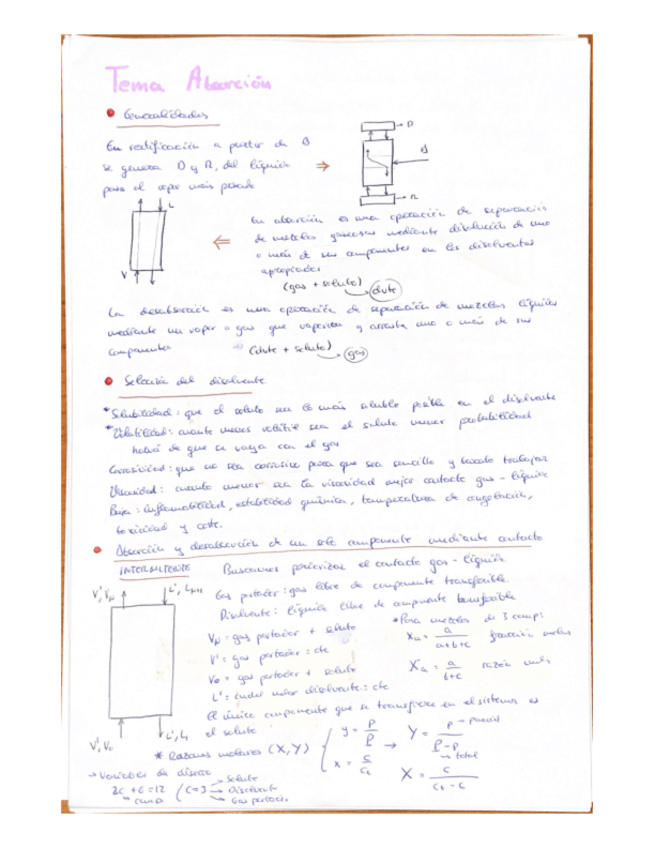 Tema Absorción
Generalidades
En rectificación a partir de B
se genera D y R, del líquido
pasa el vapor más pesado
D
B
R
L
V
En absorción es una operación de separación
de mezclas gaseosas mediante disolución de uno
o más de sus componentes en los disolventes
apropiados
(gas + soluto) dvte
La desabsorción es una operación de separación de mezclas líquidas
mediante un vapor o gas que vaporiza y arrastra uno o más de sus
componentes (dvte + soluto) gas
Selección del disolvente
*Solubilidad: que el soluto sea lo más soluble posible en el disolvente
*Volatilidad: cuanto menos volátil sea el soluto menor probabilidad
habrá de que se vaya con el gas
Corrosividad: que no sea corrosivo para que sea sencillo y barato trabajar
Viscosidad: cuanto menor sea la viscosidad mejor contacto gas - líquido
Baja: inflamabilidad, estabilidad química, temperatura de congelación,
toxicidad y coste.
Absorción y desabsorción de un solo componente mediante contacto
INTERMITENTE Buscamos priorizar el contacto gas - líquido
V', VN L', LN+1
Gas portador: gas libre de componente transferible.
Disolvente: líquido libre de componente transferible
VN = gas portador + soluto
V' = gas portador = cte
V0 = gas portador + soluto
L' = caudal molar disolvente = cte
*Para mezclas de 3 comp:
Xa = a/(a+b+c) fracción molar
Xa = a/(b+c) razón molar
El único componente que se transfiere en el sistema es
el soluto
V', V0 L', L1
* Razones molares (X, Y) y = P/P → Y = P/(P-P) parcial total
x = c/ct X = c/(ct - c)
→ Variables de diseño
2C + 6 = 12 C = 3 Soluto
comp Disolvente
Gas portador